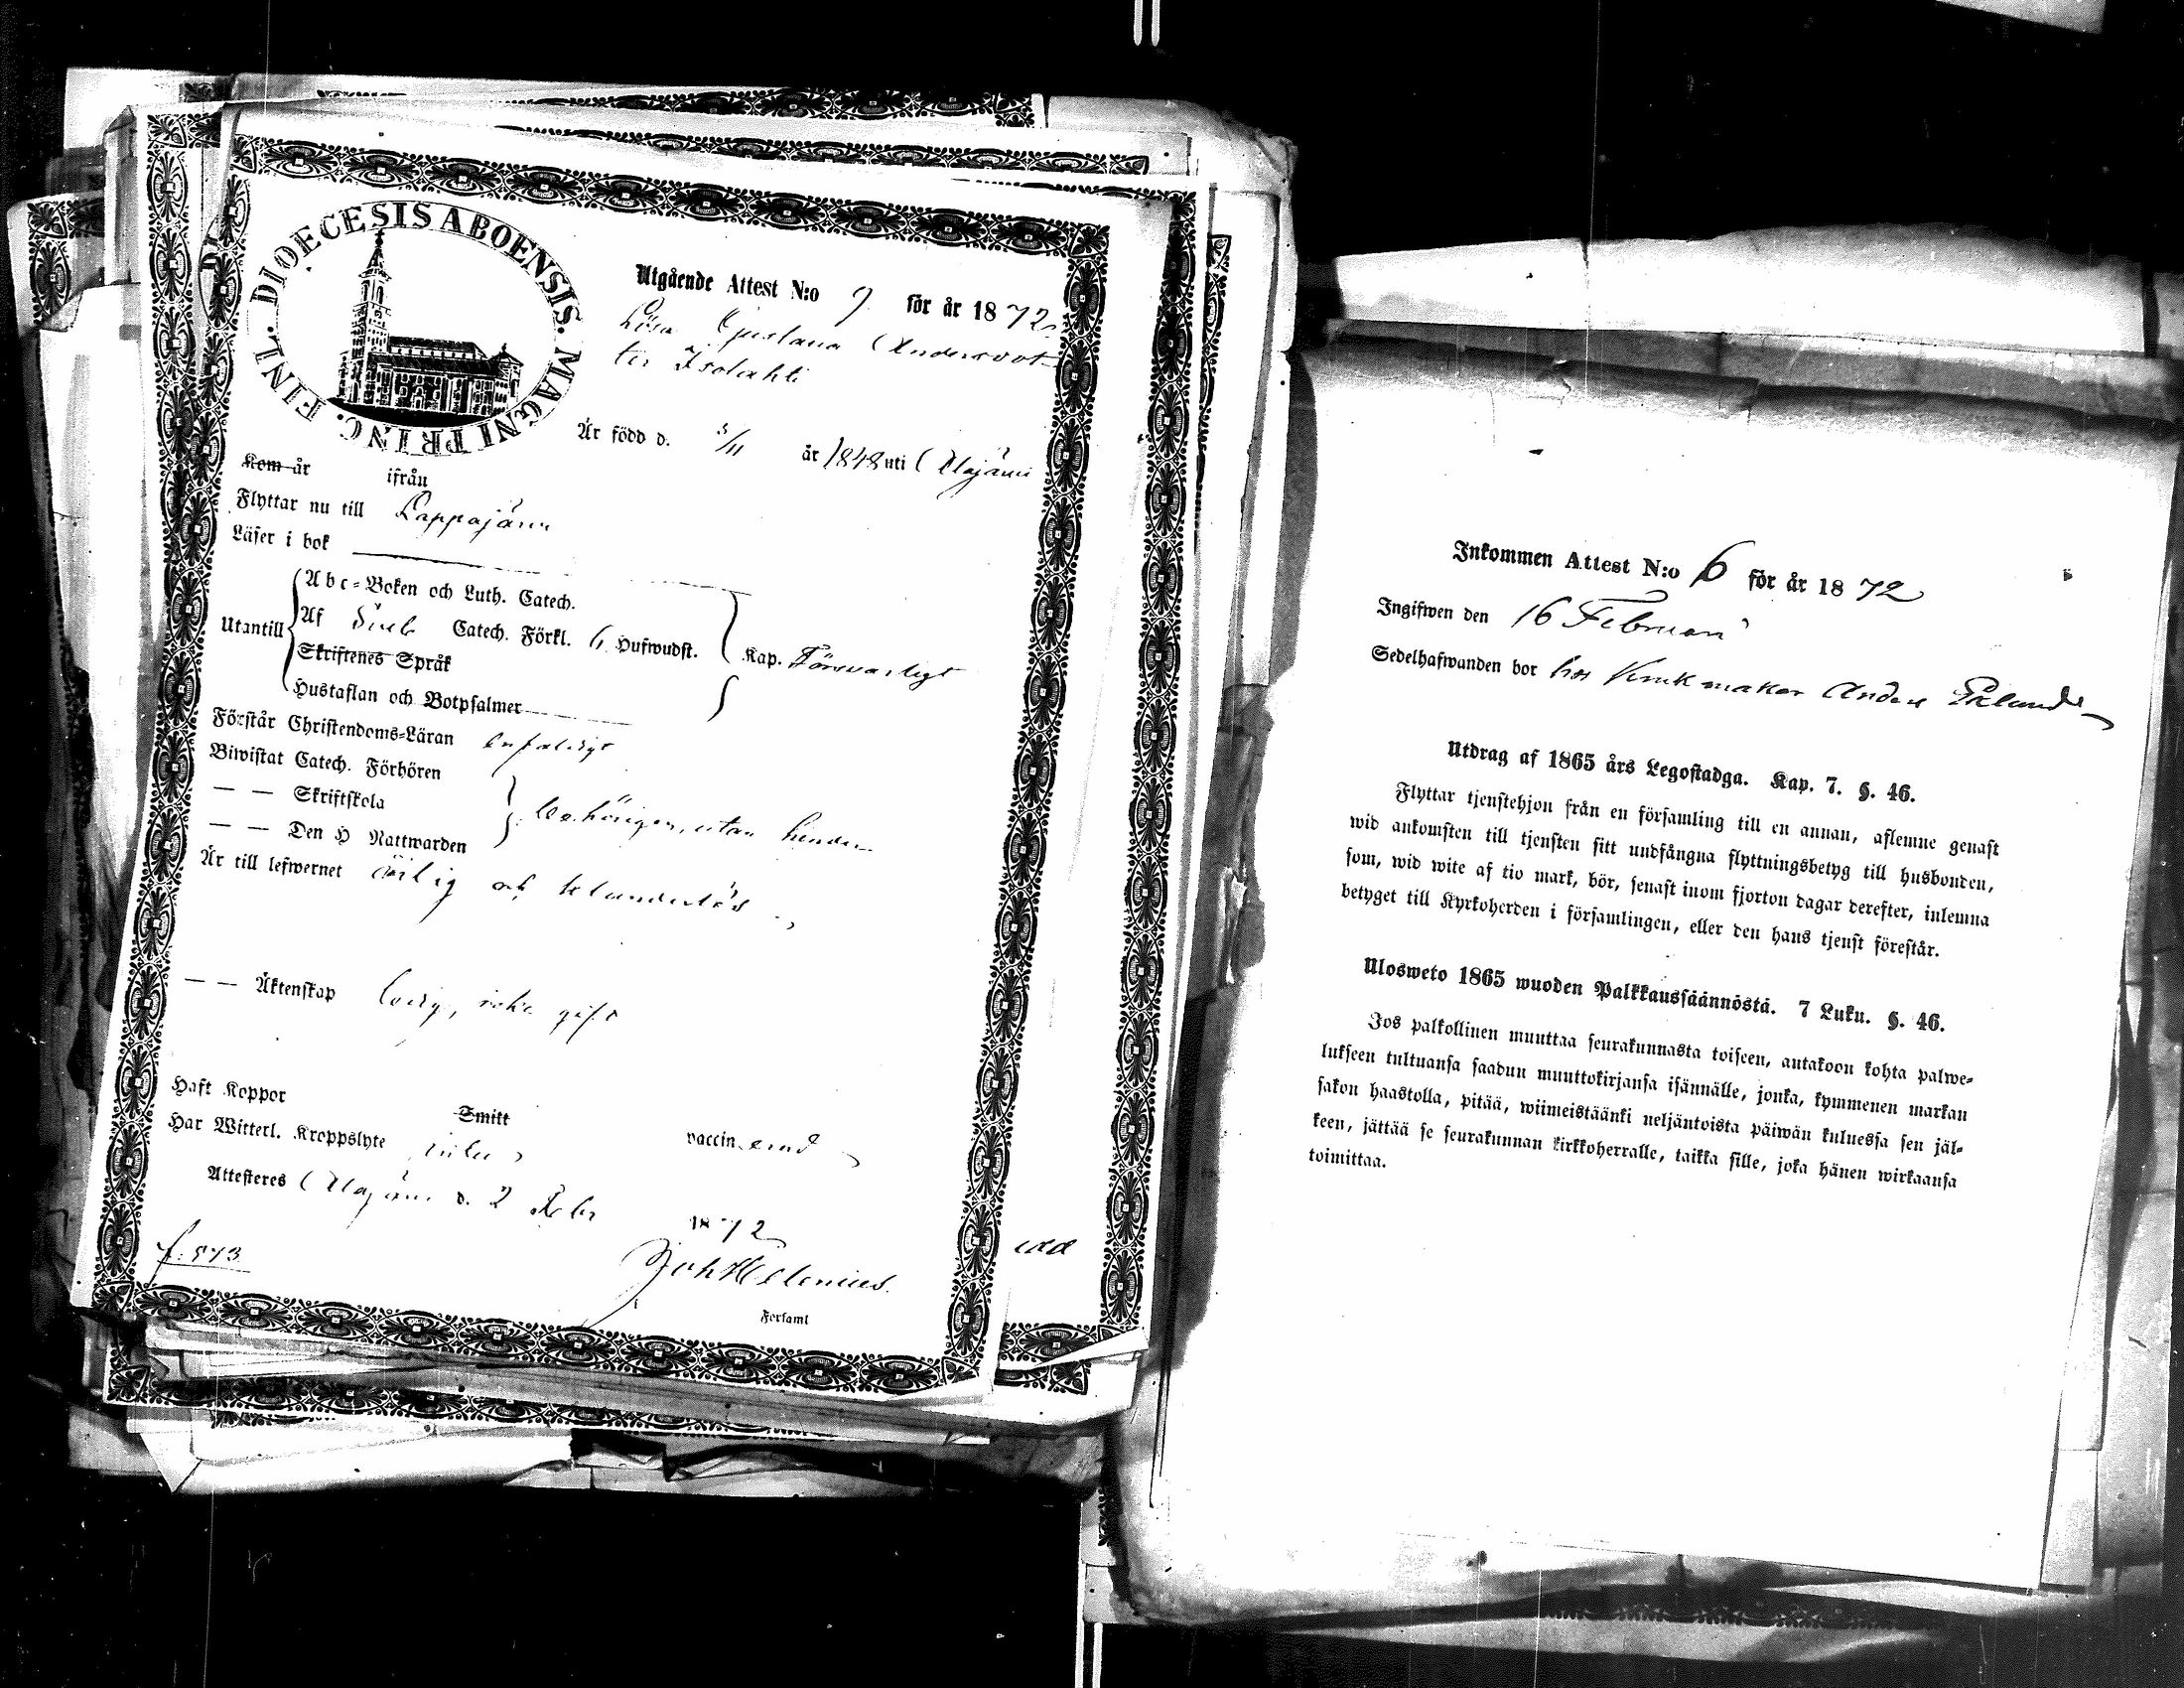 FINL. DIOECESIS ABOENSIS. MAGNI PRINC.
Utgående Attest N:o 9. för år 1872.
Lisa Gustava Andersdot-
ter Isolahti
Är född d. 5/11 år 1848 uti Alajärvi
Kom år ifrån
Flyttar nu till Lappajärvi
Läser i bok
Utantill
Abc-Boken och Luth. Catech.
Af Catech. Förkl. 6 Hufwudst.
Skriftenes Språk
Hustaflan och Botpsalmer
Kap. Försvarligt
Förstår Christendoms-Läran enfaldigt
Biwistat Catech. Förhören
— — Skriftskola
— — Den H Nattwarden
behörigen, utan hinder
Är till lefwernet ärlig och klanderlös
— — Äktenskap ledig, icke gift
Haft Koppor
Smitt vaccinerad
Har Witterl. Kroppslyte intet
Attesteras Alajärvi d. 2 Febr 1872
Joh Helenius.
Forsaml
f: 573
Inkommen Attest N:o 6 för år 1872
Ingifwen den 16 Februari
Sedelhafwanden bor hos Krukmakar Anders Eklund
Utdrag af 1865 års Legostadga. Kap. 7. §. 46.
Flyttar tjenstehjon från en församling till en annan, aflemne genast
wid ankomsten till tjensten sitt undfångna flyttningsbetyg till husbonden,
som, wid wite af tio mark, bör, senast inom fjorton dagar derefter, inlemna
betyget till Kyrkoherden i församlingen, eller den hans tjenst förestår.
Ulosweto 1865 wuoden Palkkaussäännöstä. 7 Luku. §. 46.
Jos palkollinen muuttaa seurakunnasta toiseen, antakoon kohta palwe-
lukseen tultuansa saadun muuttokirjansa isännälle, jonka, kymmenen markan
sakon haastolla, pitää, wiimeistäänki neljäntoista päiwän kuluessa sen jäl-
keen, jättää se seurakunnan kirkkoherralle, taikka sille, joka hänen wirkaansa
toimittaa.